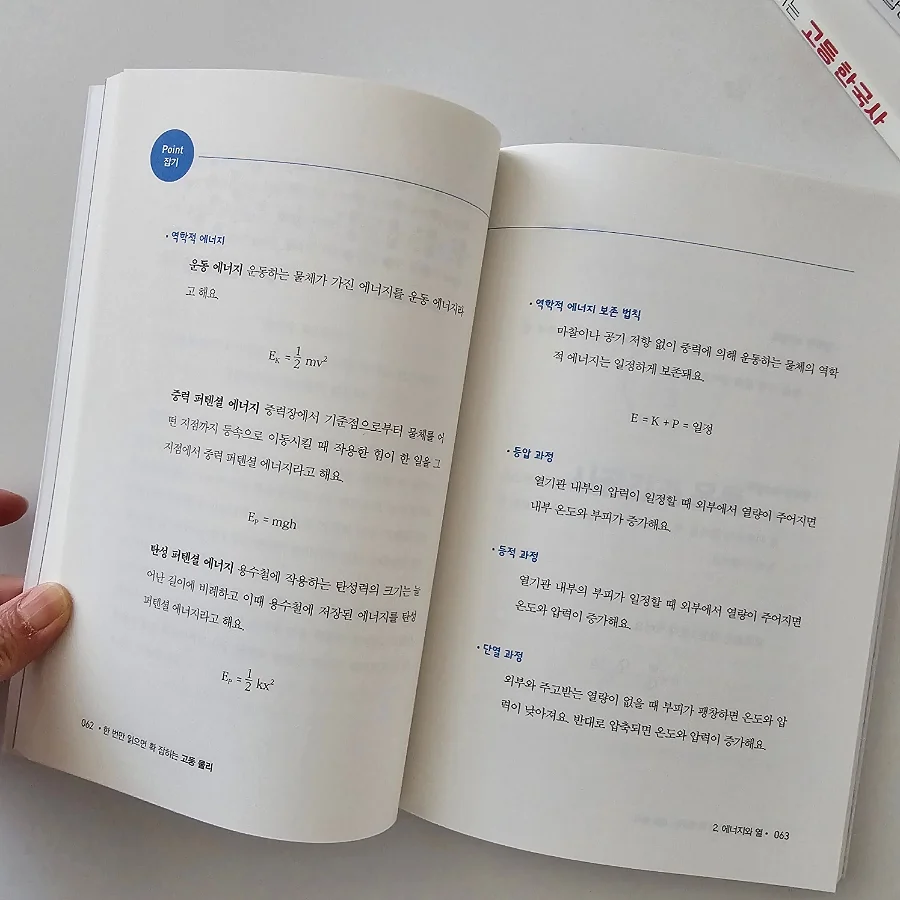 Point
잡기
• 역학적 에너지
운동 에너지 운동하는 물체가 가진 에너지를 운동 에너지라
고 해요.
E_K = 1/2 mv²
중력 퍼텐셜 에너지 중력장에서 기준점으로부터 물체를 어
떤 지점까지 등속으로 이동시킬 때 작용한 힘이 한 일을 그
지점에서 중력 퍼텐셜 에너지라고 해요.
E_P = mgh
탄성 퍼텐셜 에너지 용수철에 작용하는 탄성력의 크기는 늘
어난 길이에 비례하고 이때 용수철에 저장된 에너지를 탄성
퍼텐셜 에너지라고 해요.
E_P = 1/2 kx²
062 • 한 번만 읽으면 확 잡히는 고등 물리
• 역학적 에너지 보존 법칙
마찰이나 공기 저항 없이 중력에 의해 운동하는 물체의 역학
적 에너지는 일정하게 보존돼요.
E = K + P = 일정
• 등압 과정
열기관 내부의 압력이 일정할 때 외부에서 열량이 주어지면
내부 온도와 부피가 증가해요.
• 등적 과정
열기관 내부의 부피가 일정할 때 외부에서 열량이 주어지면
온도와 압력이 증가해요.
• 단열 과정
외부와 주고받는 열량이 없을 때 부피가 팽창하면 온도와 압
력이 낮아져요. 반대로 압축되면 온도와 압력이 증가해요.
2. 에너지와 열 • 063
는 고등 한국사